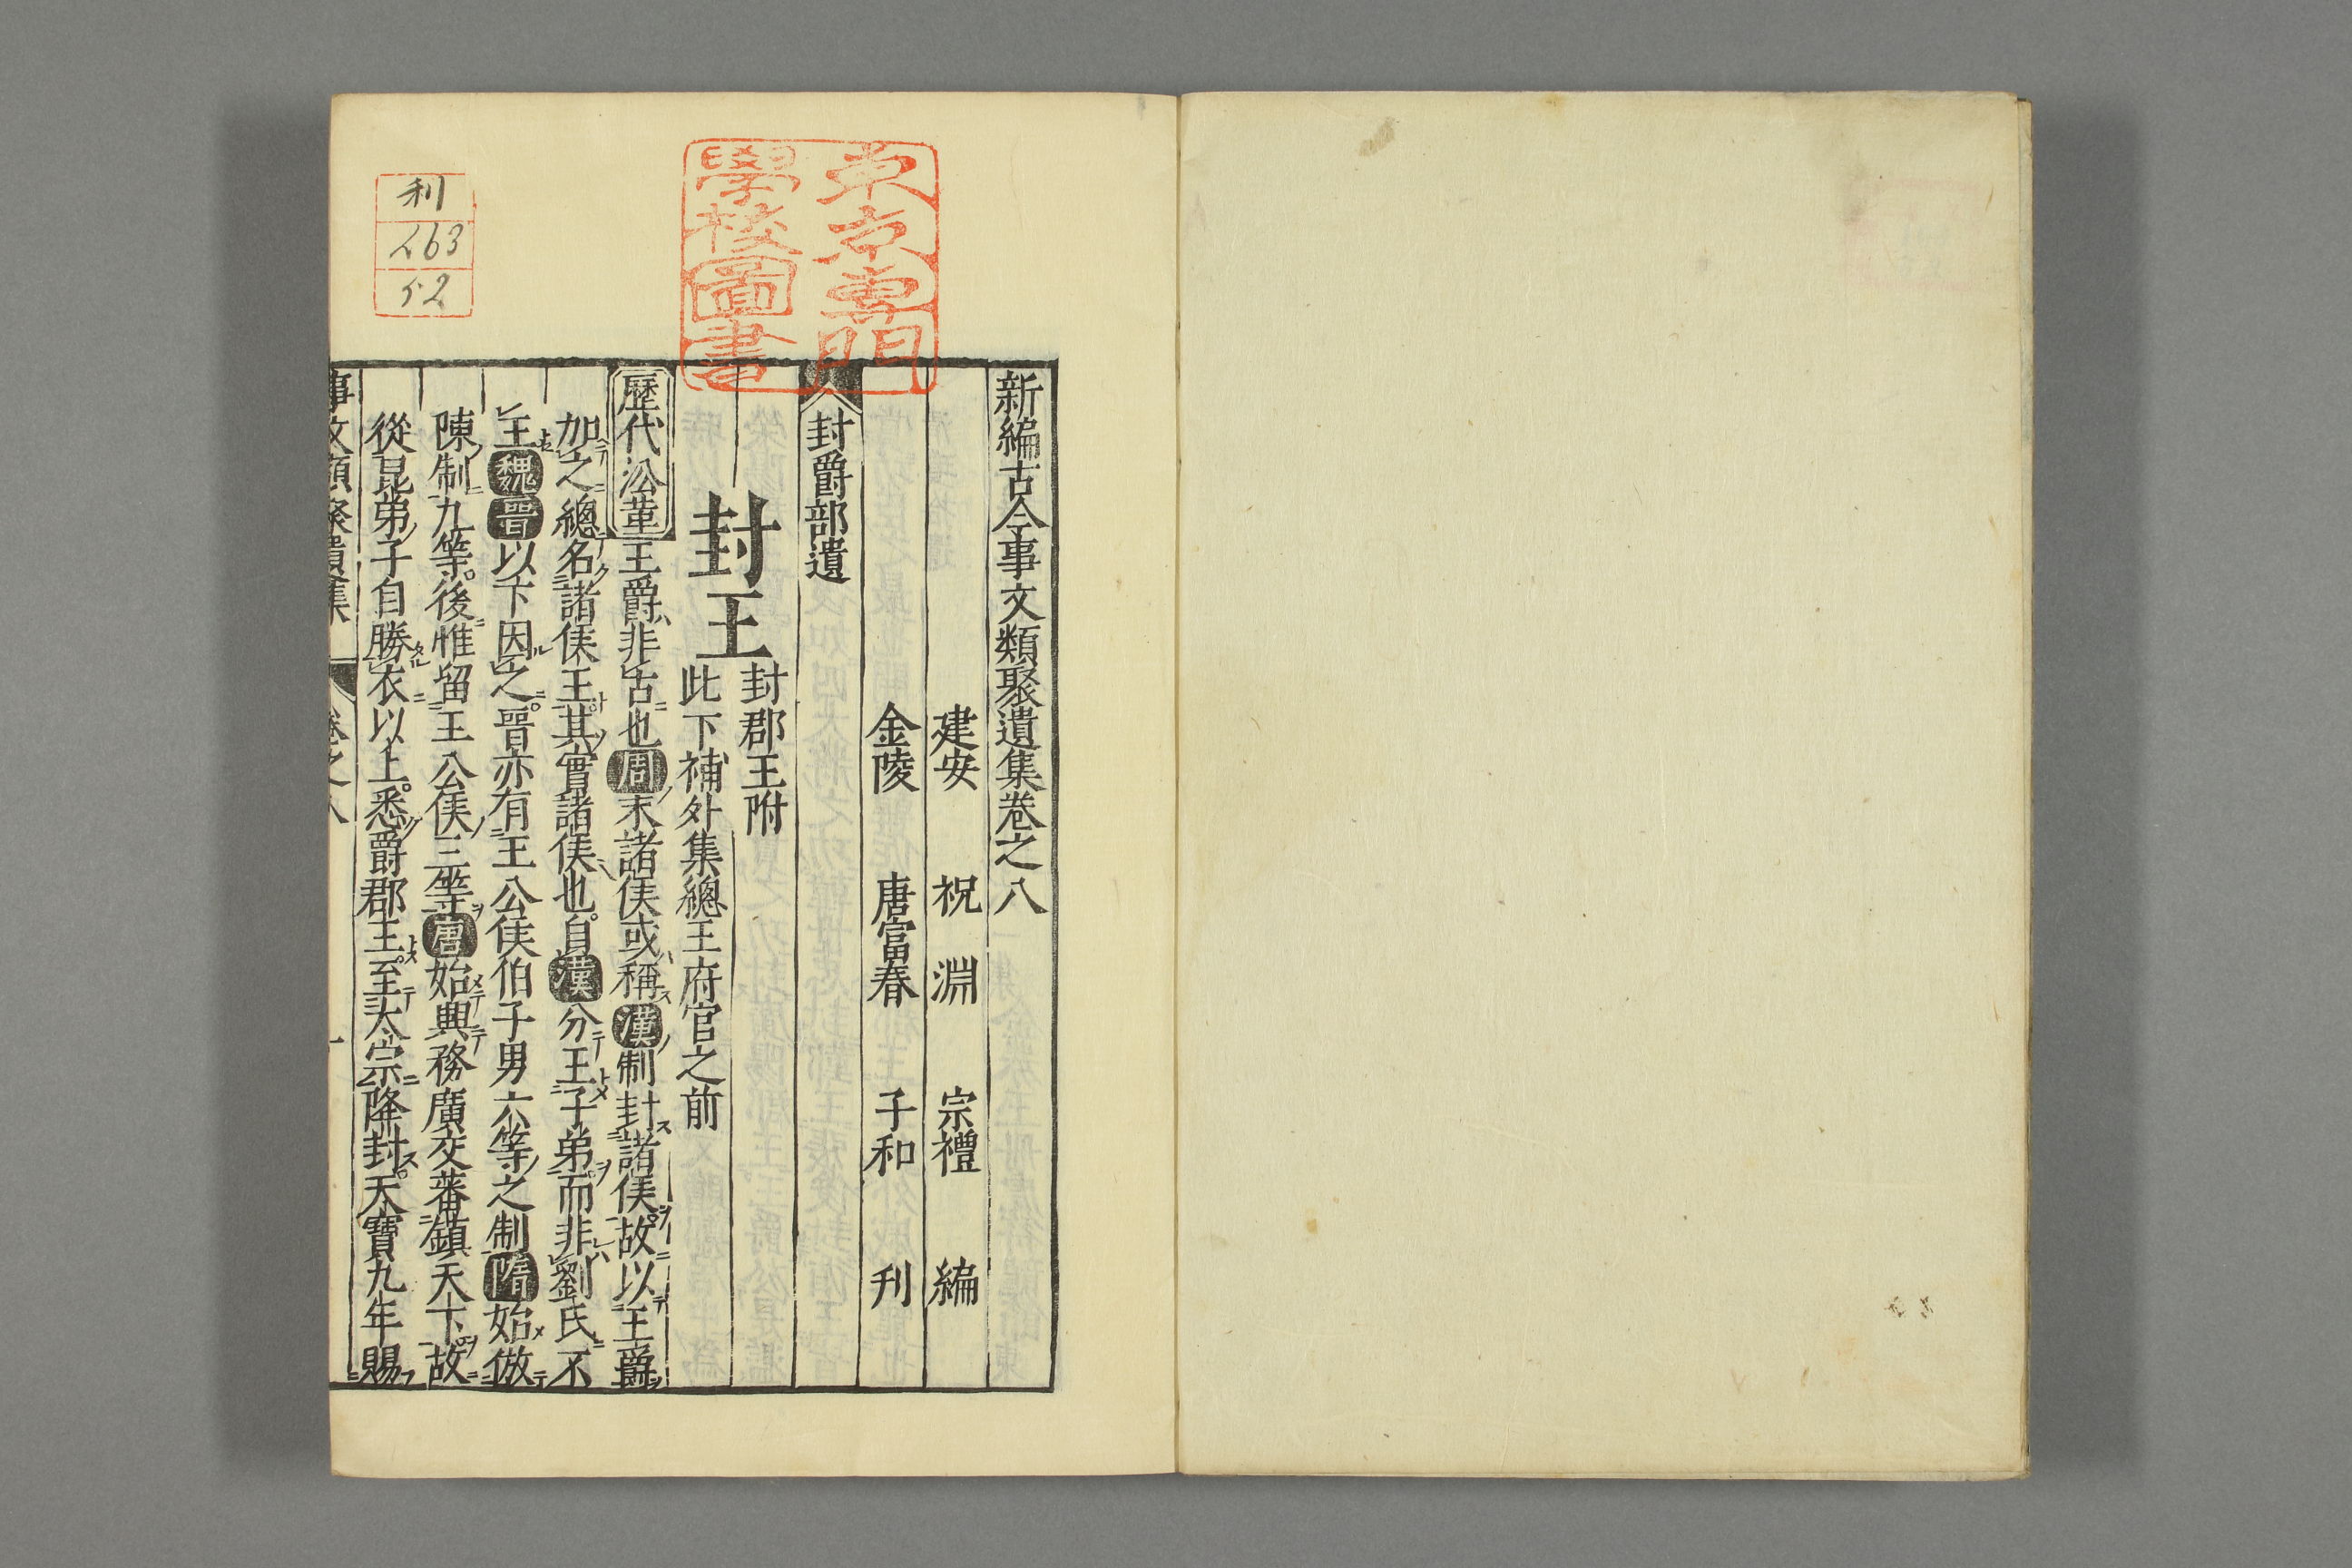 新編古今事文類聚遺集卷之八
建安 祝 淵 宗禮 編
金陵 唐富春 子和 刊
封爵部遺
封王 封郡王附
此下補外集總王府官之前
歷代沿革 王爵非古也周末諸侯或稱漢制封諸侯故以王爵
加之總名諸侯王其實諸侯也自漢分王子弟而非劉氏不
王魏晉以下因之晉亦有王公侯伯子男六等之制隋始倣
陳制九等後惟留王公侯三等唐始興務廣交蕃鎮天下故
從昆弟子自勝衣以上悉爵郡王至太宗降封天寶九年賜
事文類聚遺集 卷之八
東京專門
學校圖書
利
52